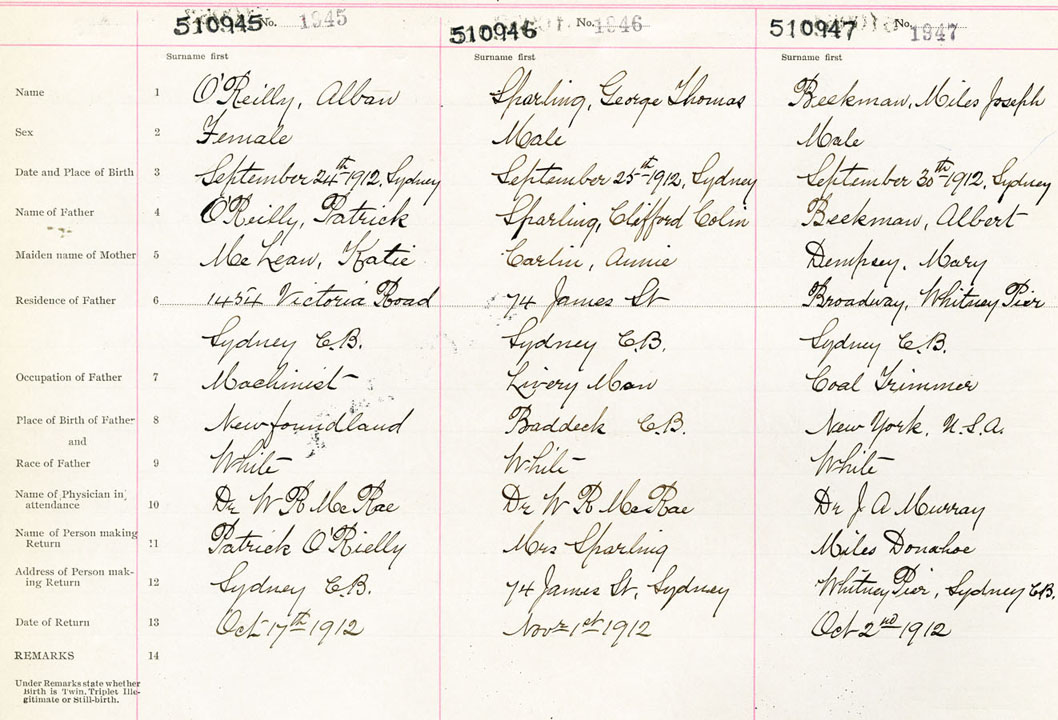 510945 No. 1945 510946 No. 1946 510947 No. 1947
Surname first Surname first Surname first
Name 1 O'Reilly, Alban Sparling, George Thomas Beekman, Miles Joseph
Sex 2 Female Male Male
Date and Place of Birth 3 September 24th 1912, Sydney September 25th 1912, Sydney September 30th 1912, Sydney
Name of Father 4 O'Reilly, Patrick Sparling, Clifford Colin Beekman, Albert
Maiden name of Mother 5 McLean, Katie Carlin, Annie Dempsey, Mary
Residence of Father 6 1454 Victoria Road 74 James St Broadway, Whitney Pier
Sydney C.B. Sydney C.B. Sydney C.B.
Occupation of Father 7 Machinist Livery Man Coal Trimmer
Place of Birth of Father 8 Newfoundland Baddeck C.B. New York, U.S.A.
and
Race of Father 9 White White White
Name of Physician in attendance 10 Dr W R McRae Dr W R McRae Dr J A Murray
Name of Person making Return 11 Patrick O'Rielly Mrs Sparling Miles Donahoe
Address of Person mak-
ing Return 12 Sydney C.B. 74 James St, Sydney Whitney Pier, Sydney C.B.
Date of Return 13 Oct 17th 1912 Novr 1st 1912 Oct 2nd 1912
REMARKS 14
Under Remarks state whether
Birth is Twin, Triplet Ille-
gitimate or Still-birth.